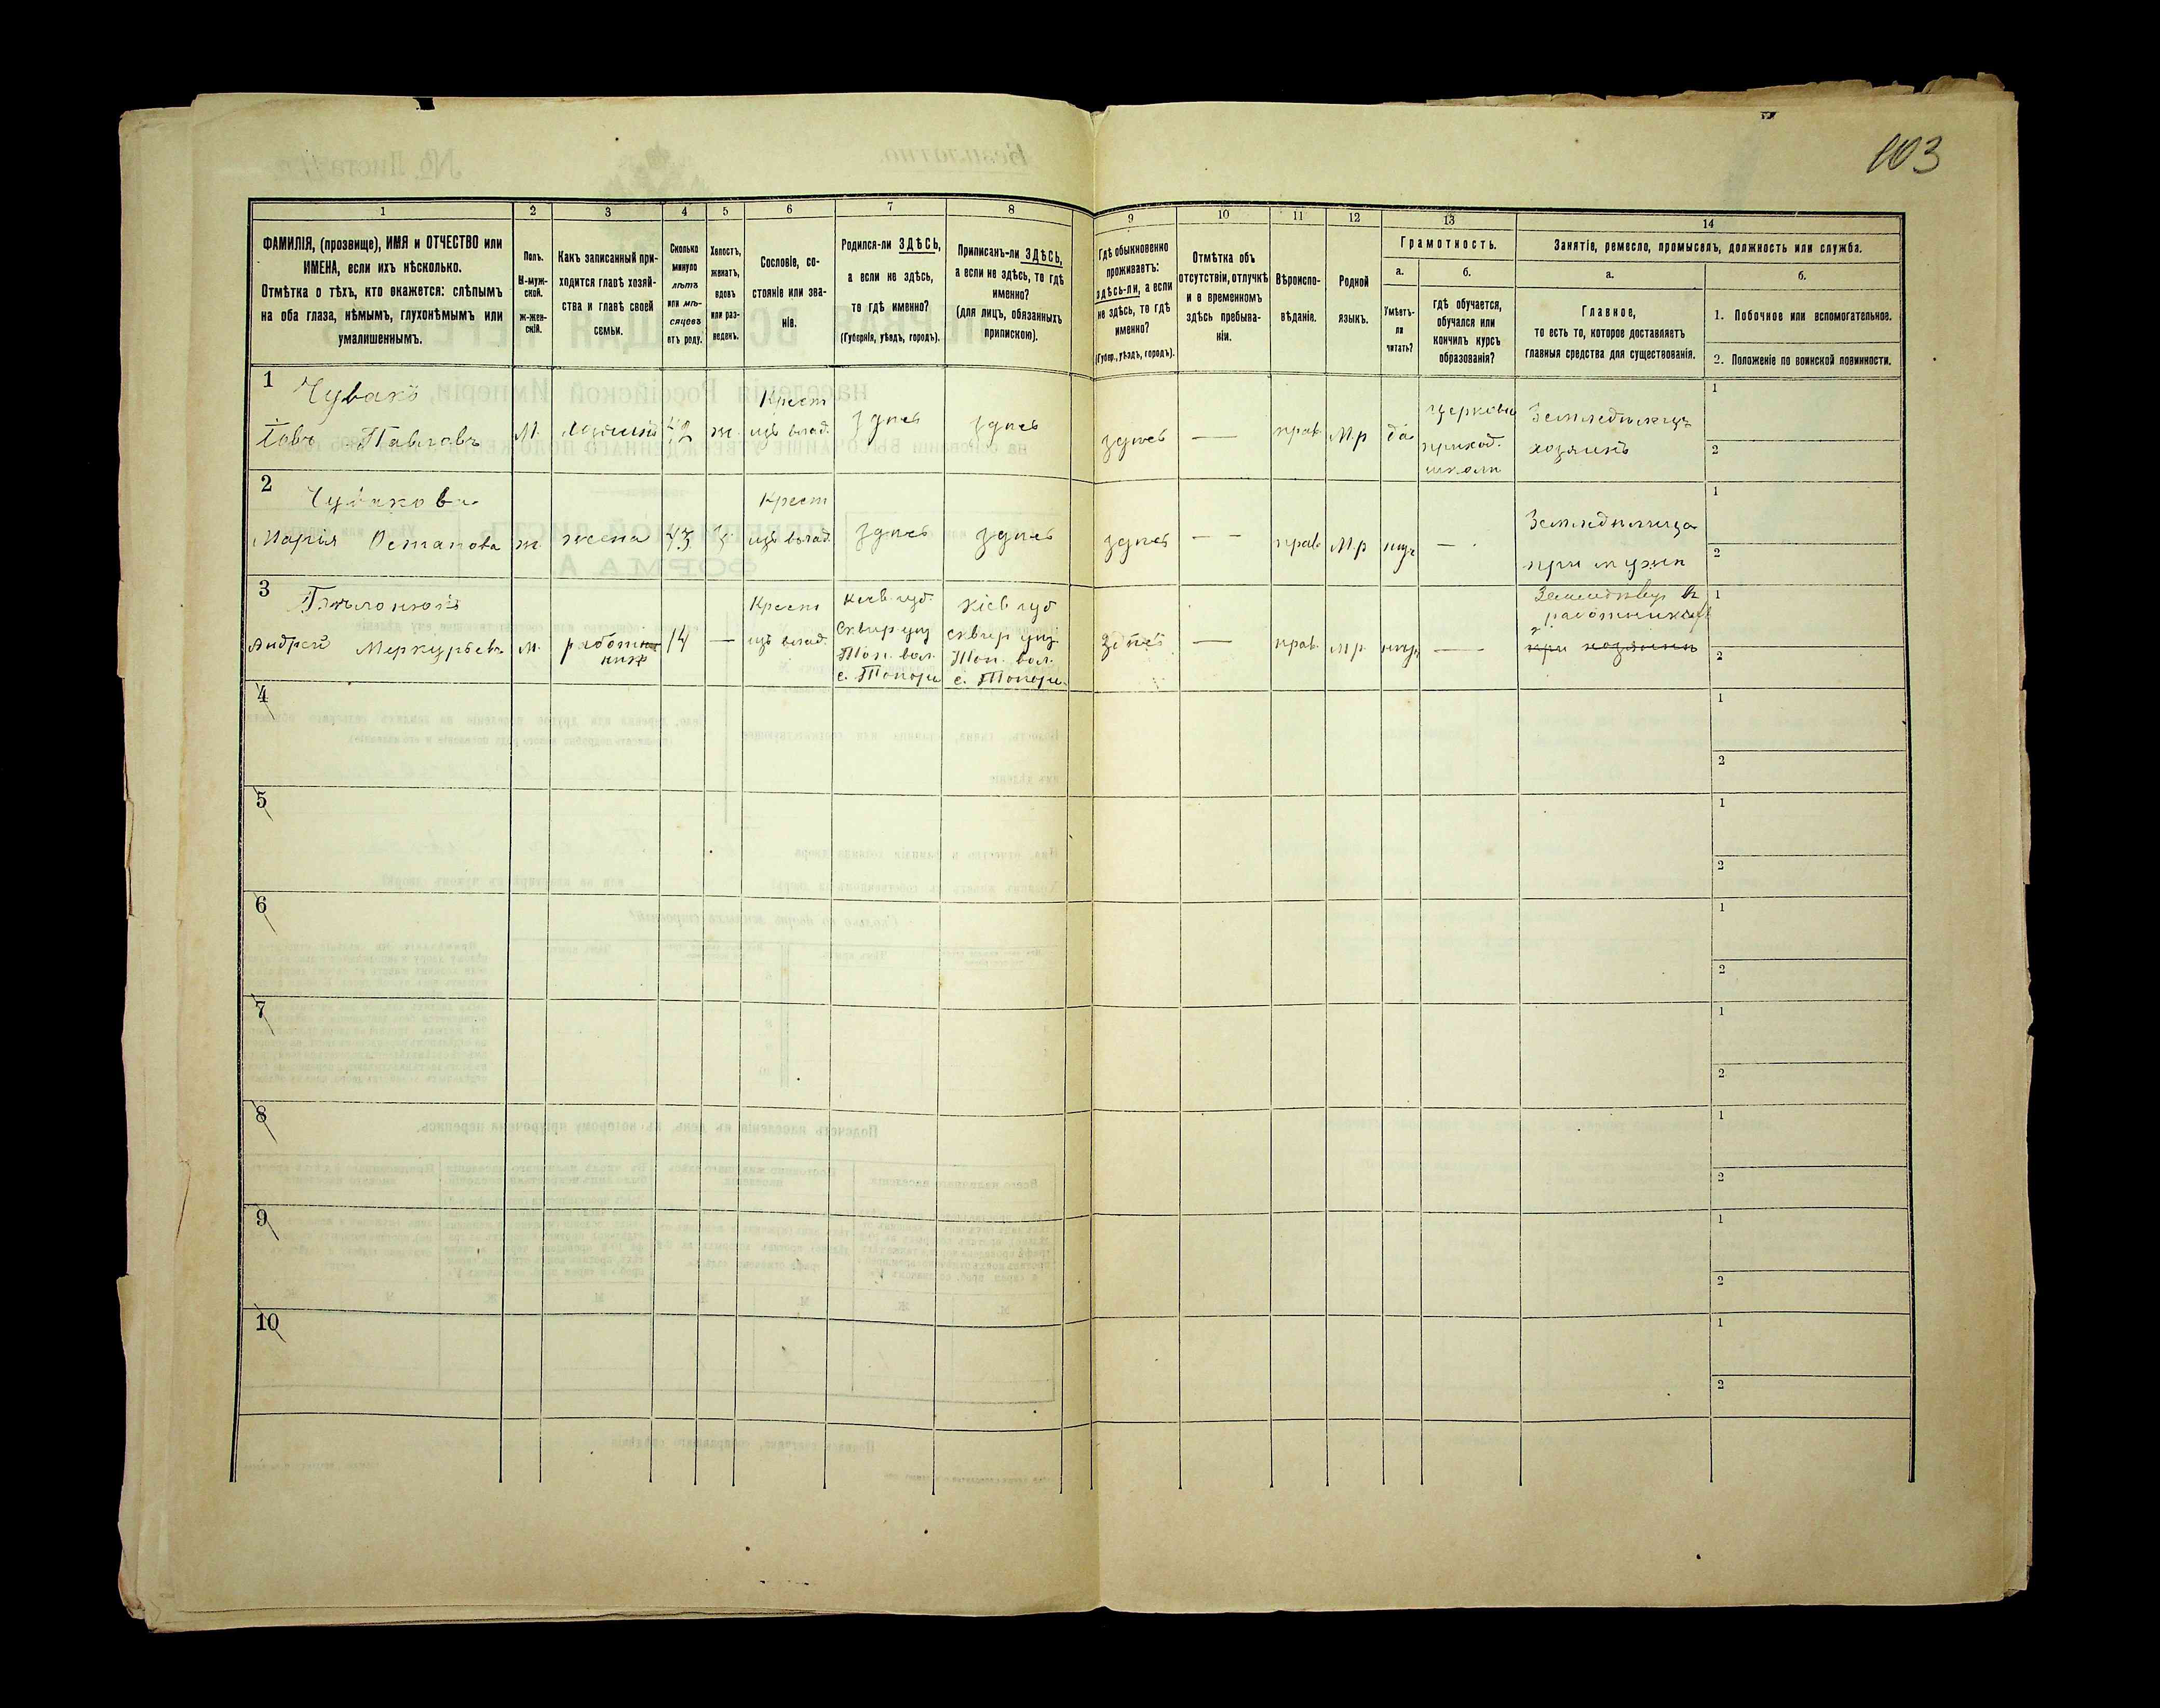 103
1
2
3
4
5
6
7
8
9
10
11
12
13
14
ФАМИЛІЯ, (прозвище), ИМЯ и ОТЧЕСТВО или
ИМЕНА, если ихъ нѣсколько.
Отмѣтка о тѣхъ, кто окажется: слѣпымъ
на оба глаза, нѣмымъ, глухонѣмымъ или
умалишеннымъ.
Полъ.
М-муж-
ской.
ж-жен-
скій.
Какъ записанный при-
ходится главѣ хозяй-
ства и главѣ своей
семьи.
Сколько
минуло
лѣтъ
или мѣ-
сяцевъ
отъ роду.
Холостъ,
женатъ,
вдовъ
или раз-
веденъ.
Сословіе, со-
стояніе или зва-
ніе.
Родился-ли ЗДѢСЬ,
а если не здѣсь,
то гдѣ именно?
(Губернія, уѣздъ, городъ).
Приписанъ-ли ЗДѢСЬ,
а если не здѣсь, то гдѣ
именно?
(для лицъ, обязанныхъ
припискою).
Гдѣ обыкновенно
проживаетъ:
здѣсь-ли, а если
не здѣсь, то гдѣ
именно?
(Губер., уѣздъ, городъ).
Отмѣтка объ
отсутствіи, отлучкѣ
и о временномъ
здѣсь пребыва-
ніи.
Вѣроиспо-
вѣданіе.
Родной
языкъ.
Грамотность.
а.
б.
Умѣетъ-
ли
читать?
гдѣ обучается,
обучался или
кончилъ курсъ
образованія?
Занятіе, ремесло, промыселъ, должность или служба.
а.
б.
Главное,
то есть то, которое доставляетъ
главныя средства для существованія.
1. Побочное или вспомогательное.
2. Положеніе по воинской повинности.
1
Чубакъ
Іовъ Павловъ
М.
хозяинъ
52
ж.
Крест
изъ влад.
здѣсь
здѣсь
здѣсь
—
прав.
М.р
да
церковн
приход.
школи
Земледѣлецъ
хозяинъ
1
2
2
Чубакова
Марія Остапова
ж.
жена
43
З.
Крест
изъ влад.
здѣсь
здѣсь
здѣсь
— —
прав.
М.р
нѣтъ
—
Земледѣлица
при мужѣ
1
2
3
Андрей Меркурьевъ
м.
работн
никъ
14
—
Крест
изъ влад.
Кіев. губ.
Сквир уѣз
Топ. вол.
с. Топори
Кіев губ
Сквир уѣз
Топ. вол.
с. Топори.
здѣсь
—
прав.
М р.
нѣтъ
—
работникъ
при хозяинѣ
1
2
4
1
2
5
1
2
6
1
2
7
1
2
8
1
2
9
1
2
10
1
2